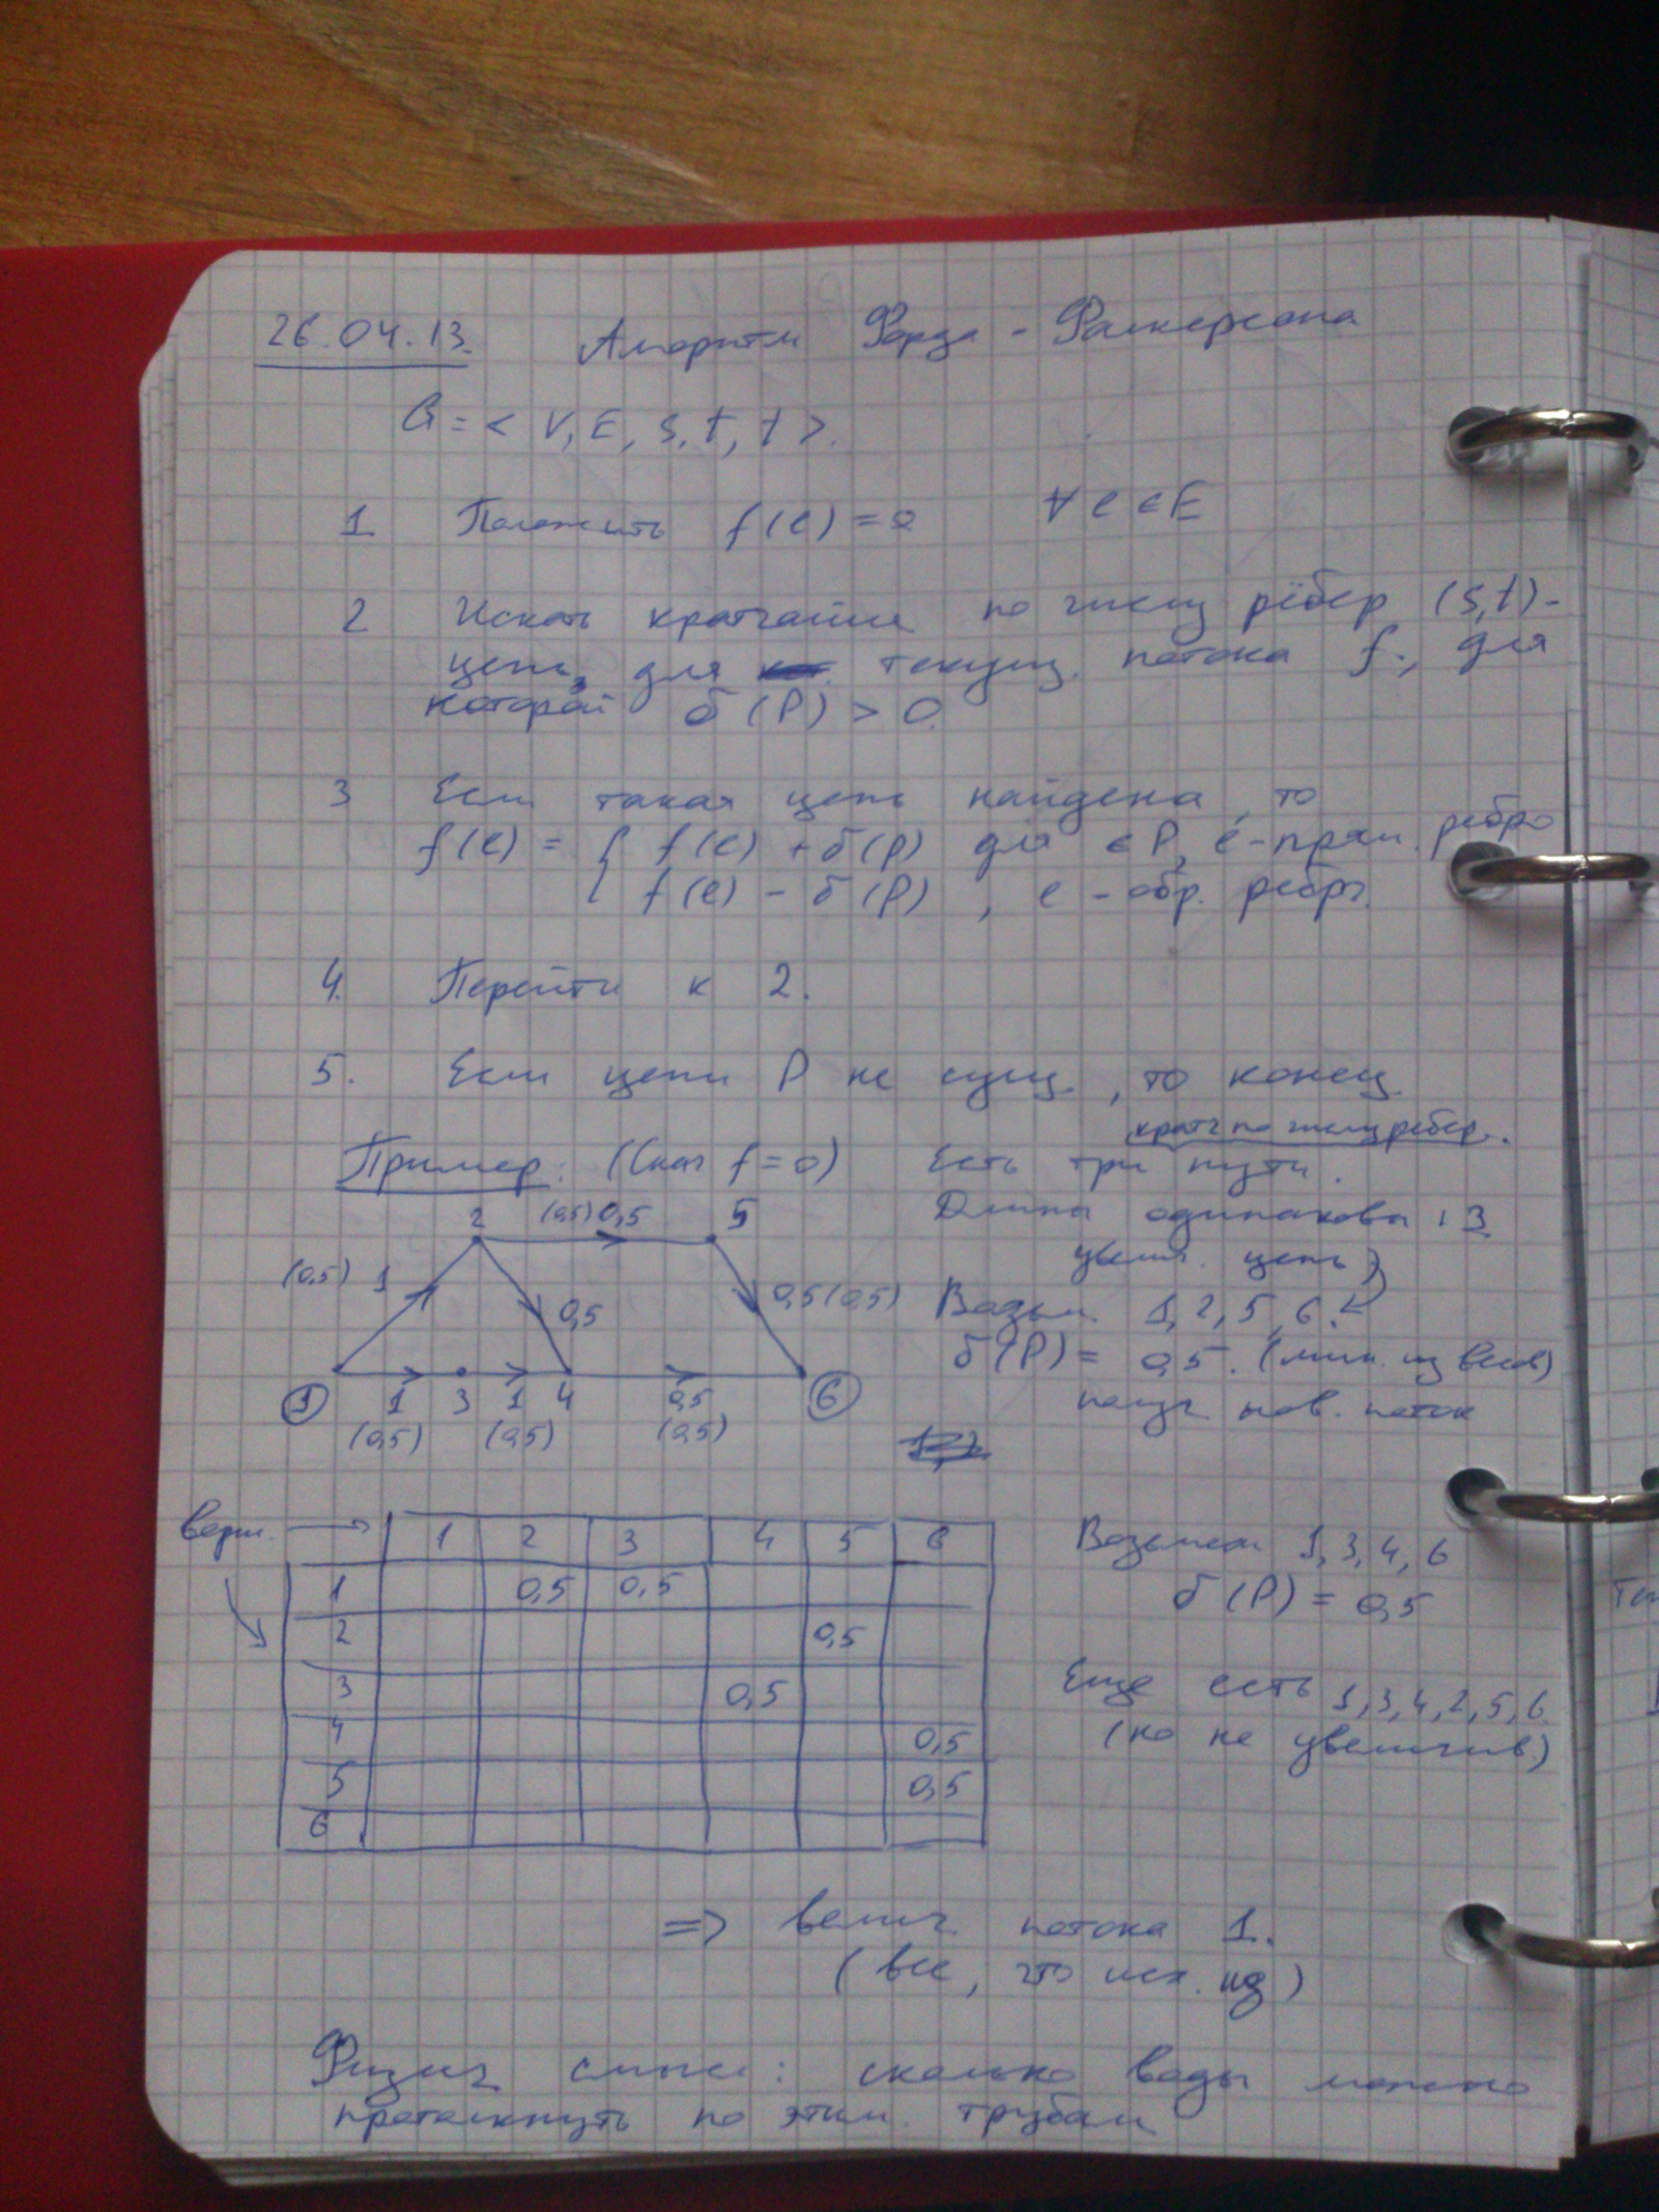 26.04.13. Алгоритм Форда - Фалкерсона
G = < V, E, s, t, f >.
1 Положить f(e) = 0 ∀ e ∈ E
2 Искать кратчайш по числу рёбер (s,t)-
цепь, для текущ. потока f., для
которой δ(P) > 0.
3 Если такая цепь найдена, то
f(e) = { f(e) + δ(P) для ∈ P, e - прям. ребро
f(e) - δ(P) , e - обр. ребро.
4. Перейти к 2.
5. Если цепи P не сущ., то конец.
кратч по числу ребер.
Пример: (Снач f=0) Есть три пути.
Длины одинаковы : 3
увелич. цепь
Возьм. 1, 2, 5, 6.
δ(P) = 0,5. (мин. из весов)
получ нов. поток
2 (0,5) 0,5 5
(0,5) 1 0,5 0,5 (0,5)
1 1 3 1 4 0,5 6
(0,5) (0,5) (0,5)
верш. → 1 2 3 4 5 6
1 0,5 0,5
2 0,5
3 0,5
4 0,5
5 0,5
6
Возьмем 1, 3, 4, 6
δ(P) = 0,5
Еще есть 1,3,4,2,5,6.
(но не увеличив.)
=> велич. потока 1.
(все, что исх. из)
Физич смысл: сколько воды можно
протолкнуть по этим. трубам